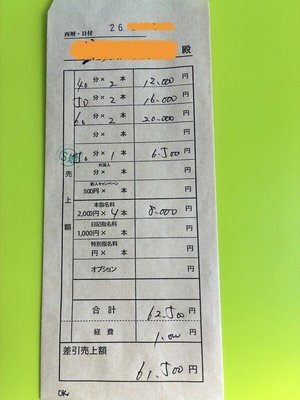 西暦・日付 26.
殿
40分× 2 本 12,000円
50分× 2 本 16,000円
60分× 2 本 20,000円
分× 本 円
50分× 1 本 6,500円
外国人
分× 本 円
新人キャンペーン
500円× 本 円
本指名料
2,000円× 4 本 8,000円
日記指名料
1,000円× 本 円
特別指名料
円× 本 円
オプション 円
売上額
合計 62,500円
経費 1,000円
差引売上額
61,500円
OK